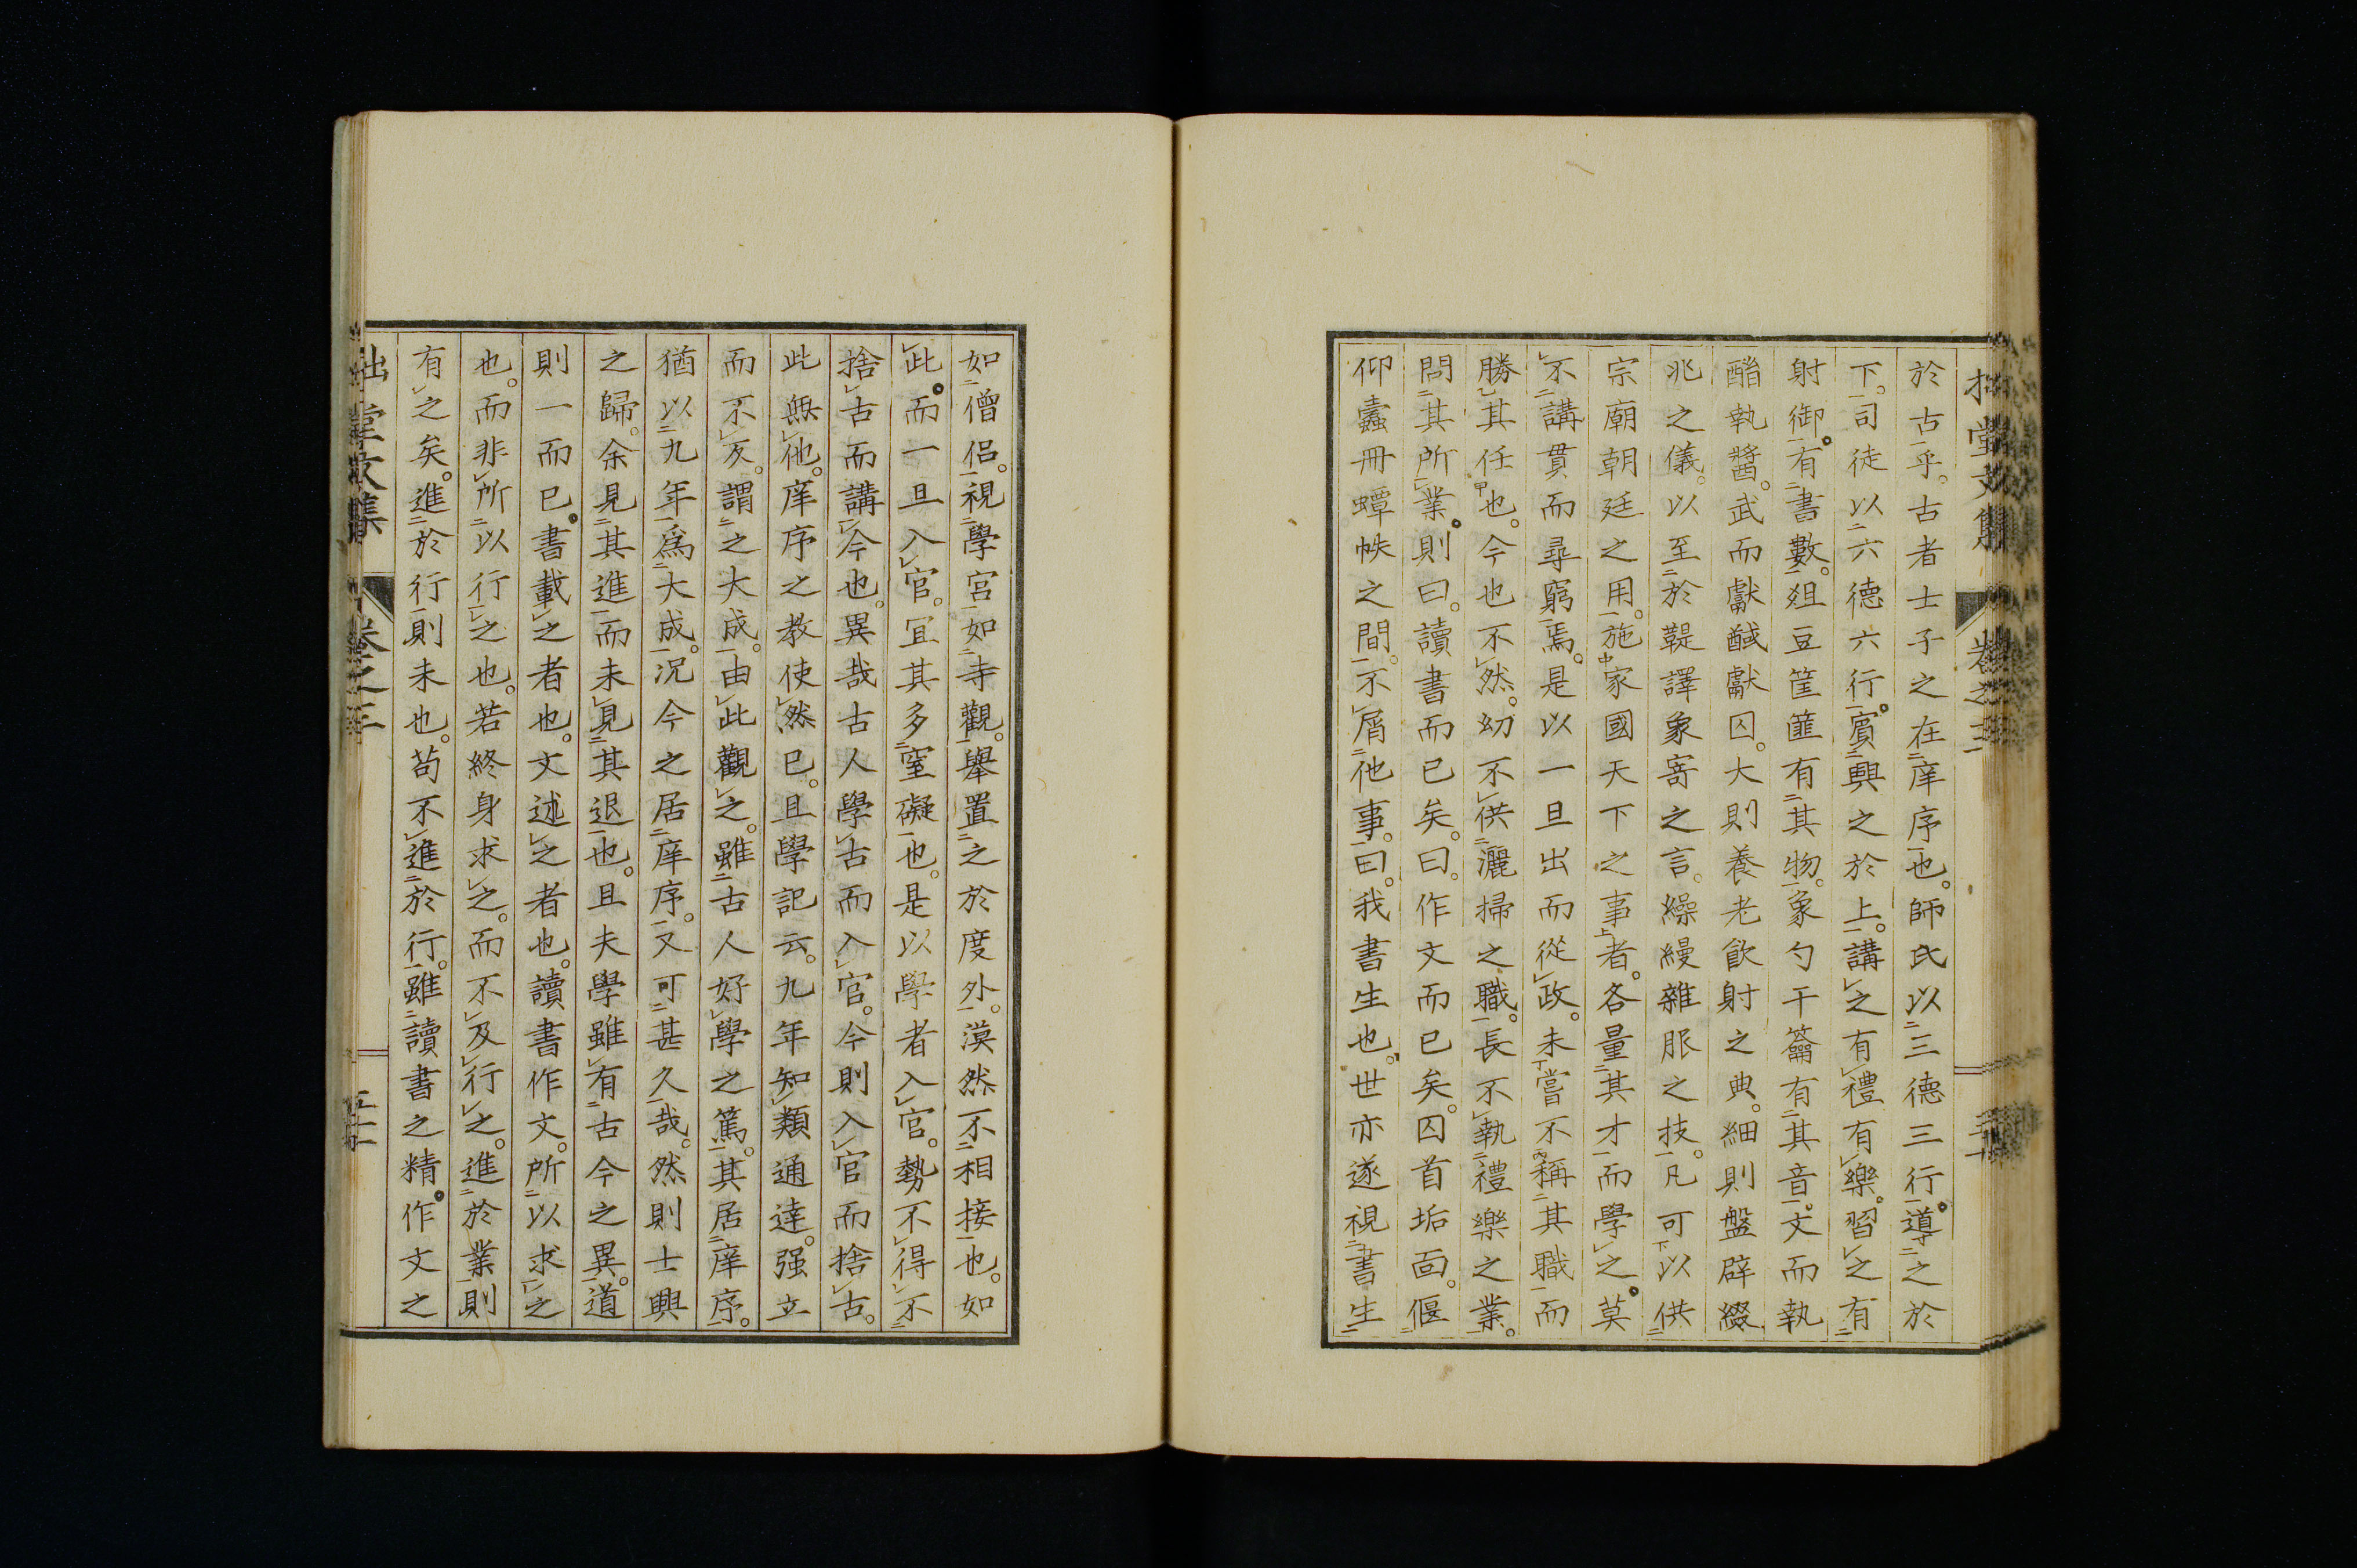 於古乎。古者士子之在庠序也。師氏以三德三行。導之於
下。司徒以六德六行。賓興之於上。講之有禮有樂。習之有
射御。有書數。俎豆筐篚有其物。象勺干籥有其音。文而執
酳執醬。武而獻馘獻囚。大則養老飲射之典。細則盤辟綴
兆之儀。以至於鞮譯象寄之言。繰縵雜服之技。凡可以供
宗廟朝廷之用。施家國天下之事者。各量其才而學之。莫
不講貫而尋窮焉。是以一旦出而從政。未嘗不稱其職而
勝其任也。今也不然。幼不供灑掃之職。長不執禮樂之業。
問其所業。則曰。讀書而已矣。曰。作文而已矣。囚首垢面。偃
仰蠹冊蟫帙之間。不屑他事。曰。我書生也。世亦遂視書生
如僧侶。視學宮如寺觀。舉置之於度外。漠然不相接也。如
此。而一旦入官。宜其多窒礙也。是以學者入官。勢不得不
捨古而講今也。異哉古人學古而入官。今則入官而捨古。
此無他。庠序之教使然已。且學記云。九年知類通達。强立
而不反。謂之大成。由此觀之。雖古人好學之篤。其居庠序。
猶以九年爲大成。況今之居庠序。又可甚久哉。然則士興
之歸。余見其進而未見其退也。且夫學雖有古今之異。道
則一而已。書載之者也。文述之者也。讀書作文。所以求之
也。而非所以行之也。若終身求之。而不及行之。進於業則
有之矣。進於行則未也。苟不進於行。雖讀書之精。作文之
拙堂文集 卷之三